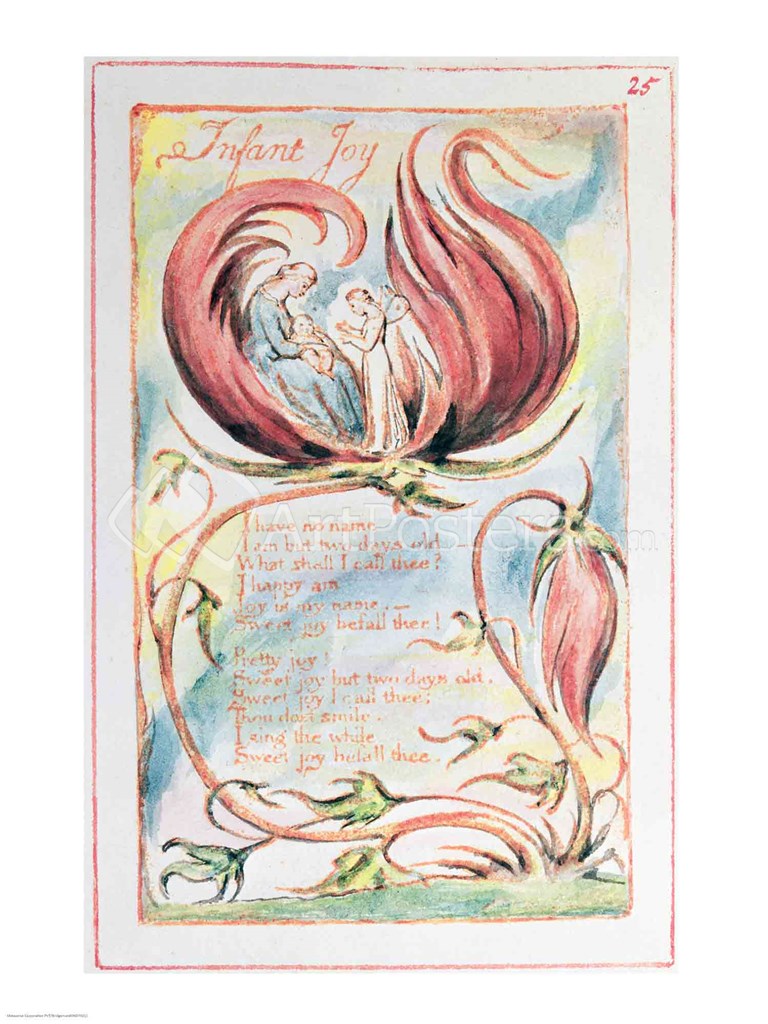 25
Infant Joy
I have no name
I am but two days old. —
What shall I call thee?
I happy am
Joy is my name. —
Sweet joy befall thee!
Pretty joy!
Sweet joy but two days old.
Sweet joy I call thee;
Thou dost smile.
I sing the while
Sweet joy befall thee.
ArtPosters.com